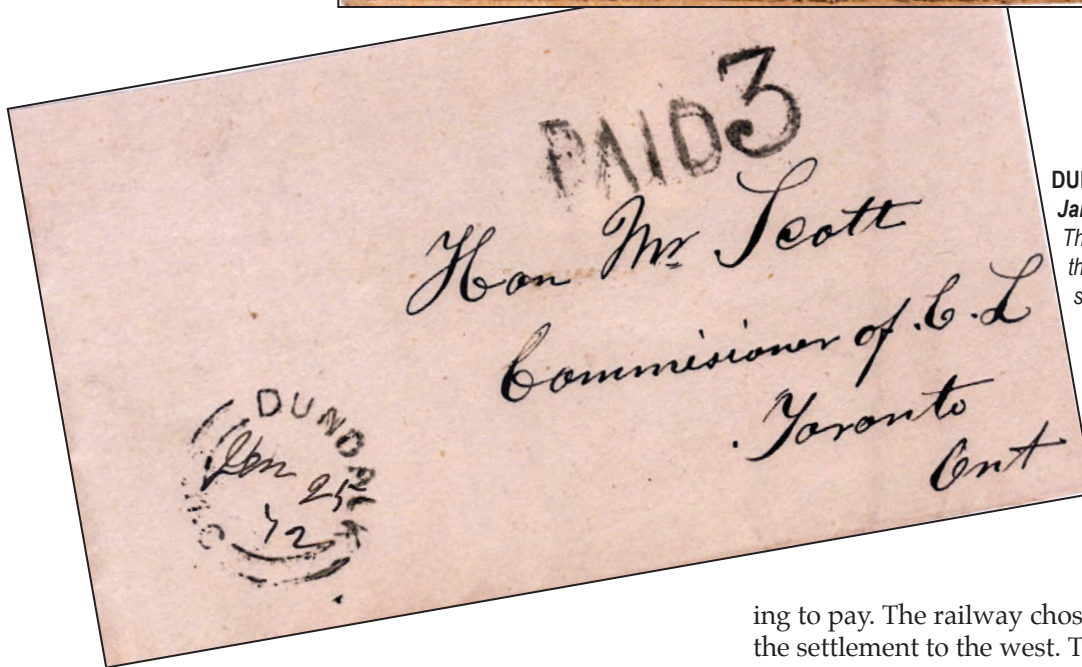 PAID 3
Hon Mr Scott
Commisioner of C. L
Toronto
Ont
DUNDALK
Jan 25
72
ONT
Th
th
s
ing to pay. The railway chos
the settlement to the west. T